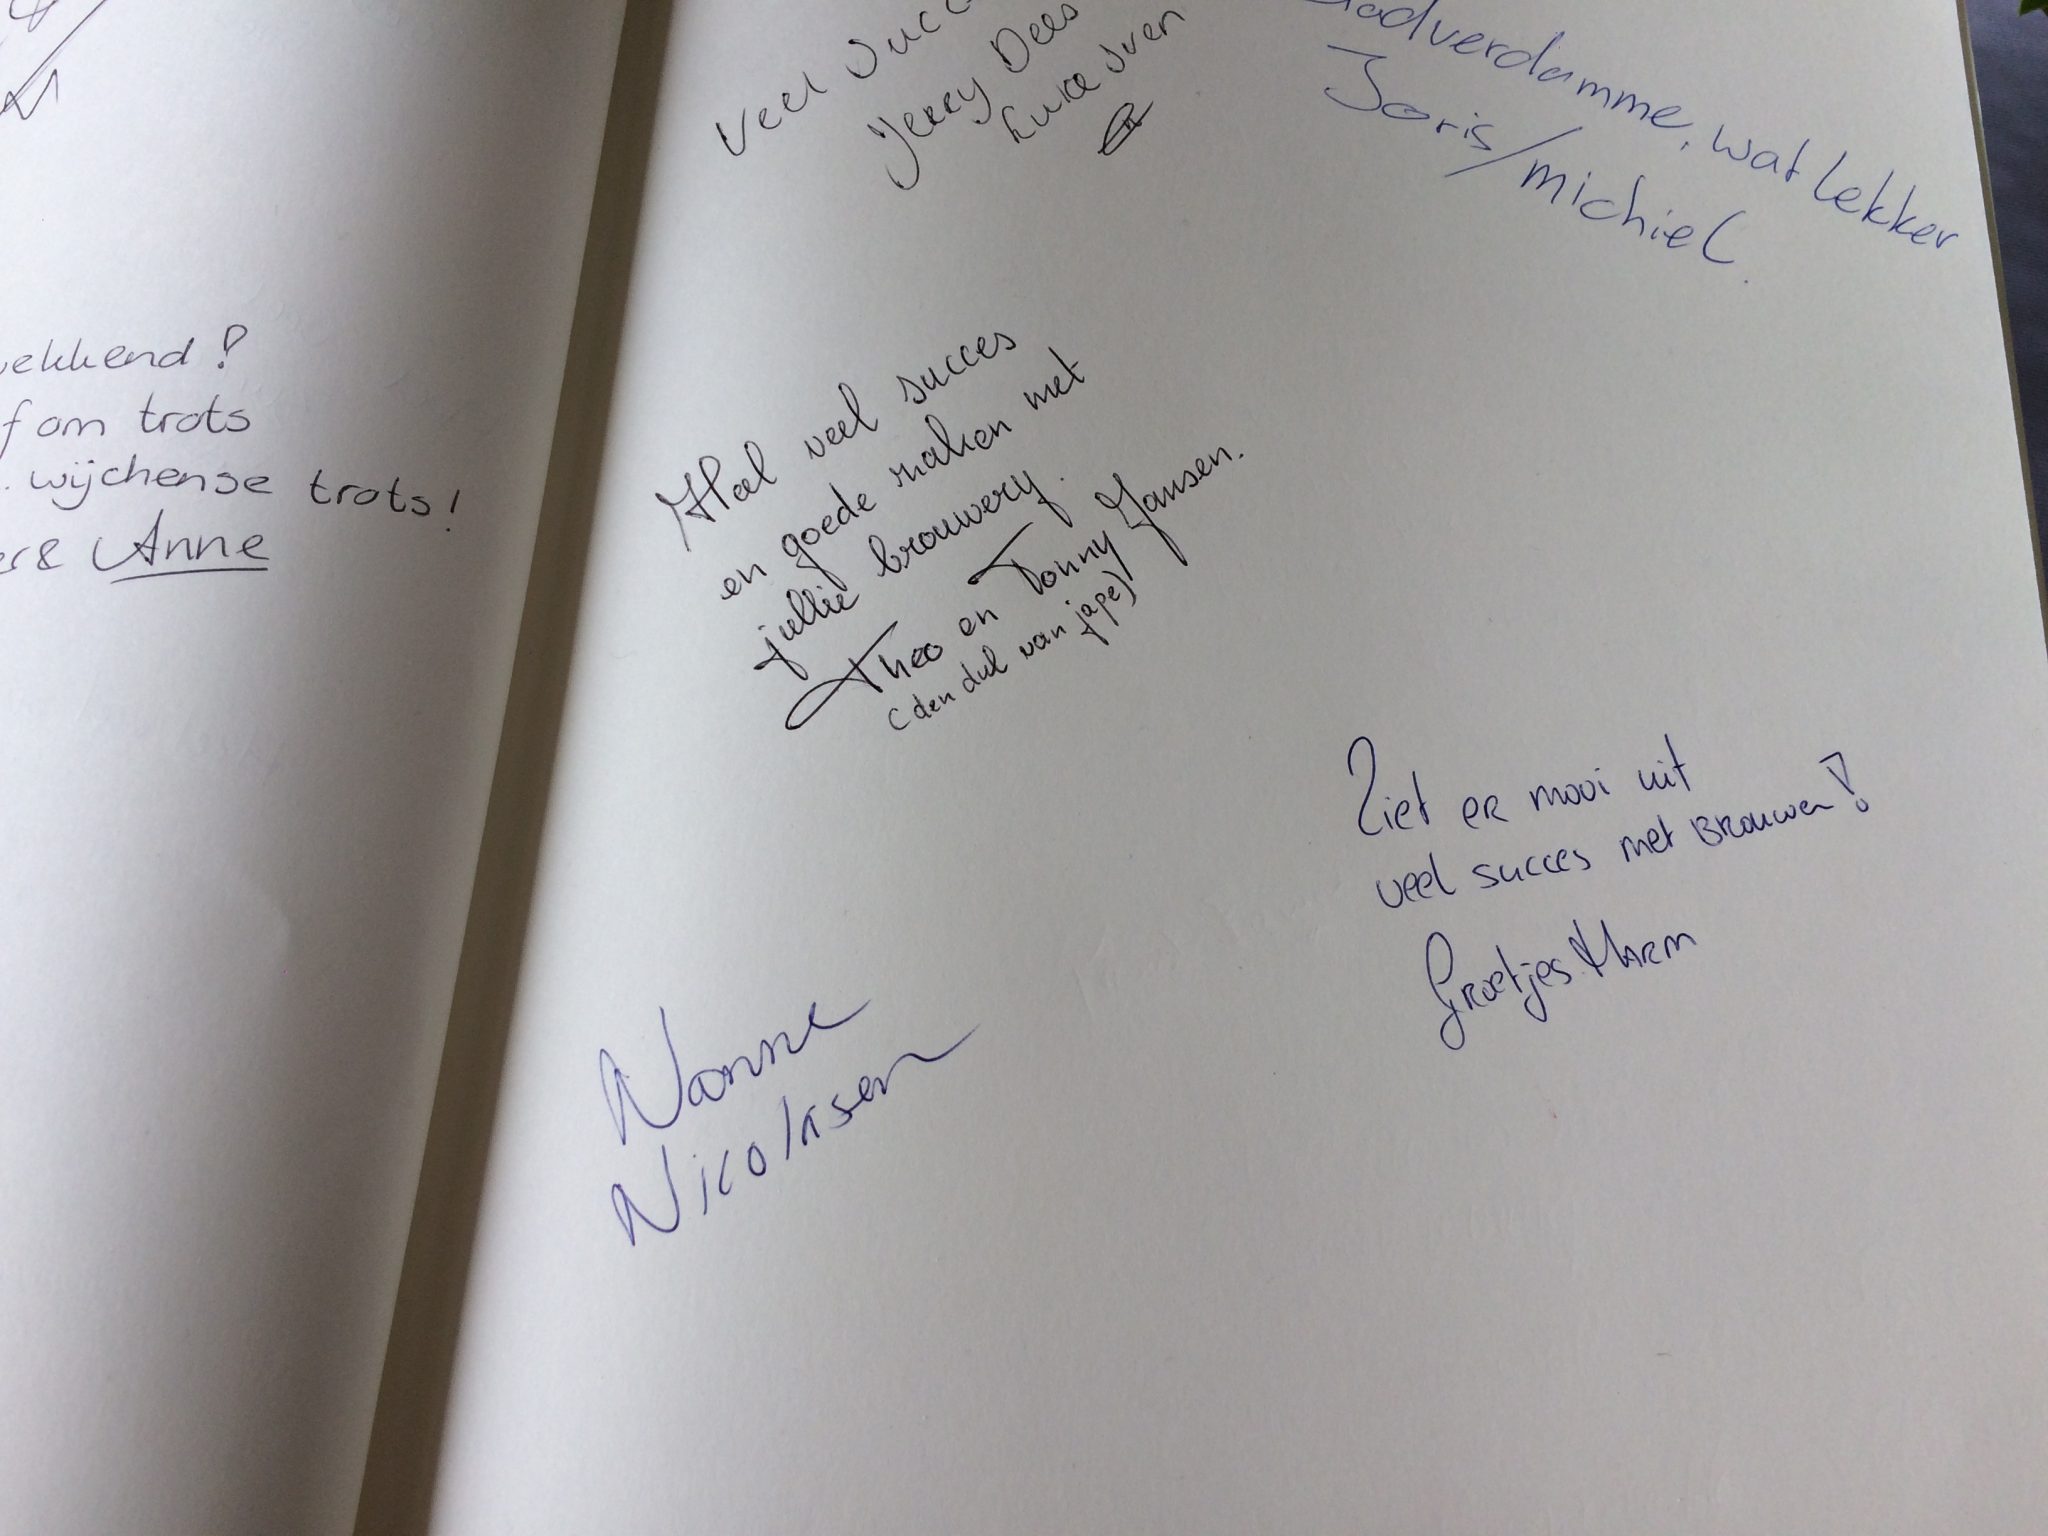 wekkend?
f om trots
wijchense trots!
er& Anne
Veel Succ
Jerry Dees
Luka Sven
Godverdamme, wat lekker
Joris/michiel.
Heel veel succes
en goede zaken met
jullie brouwery.
Theo en Tonny Jansen.
(den dul van jape)
Ziet er mooi uit
veel succes met Brouwen!
Groetjes Harm
Nanne
Nicolasen